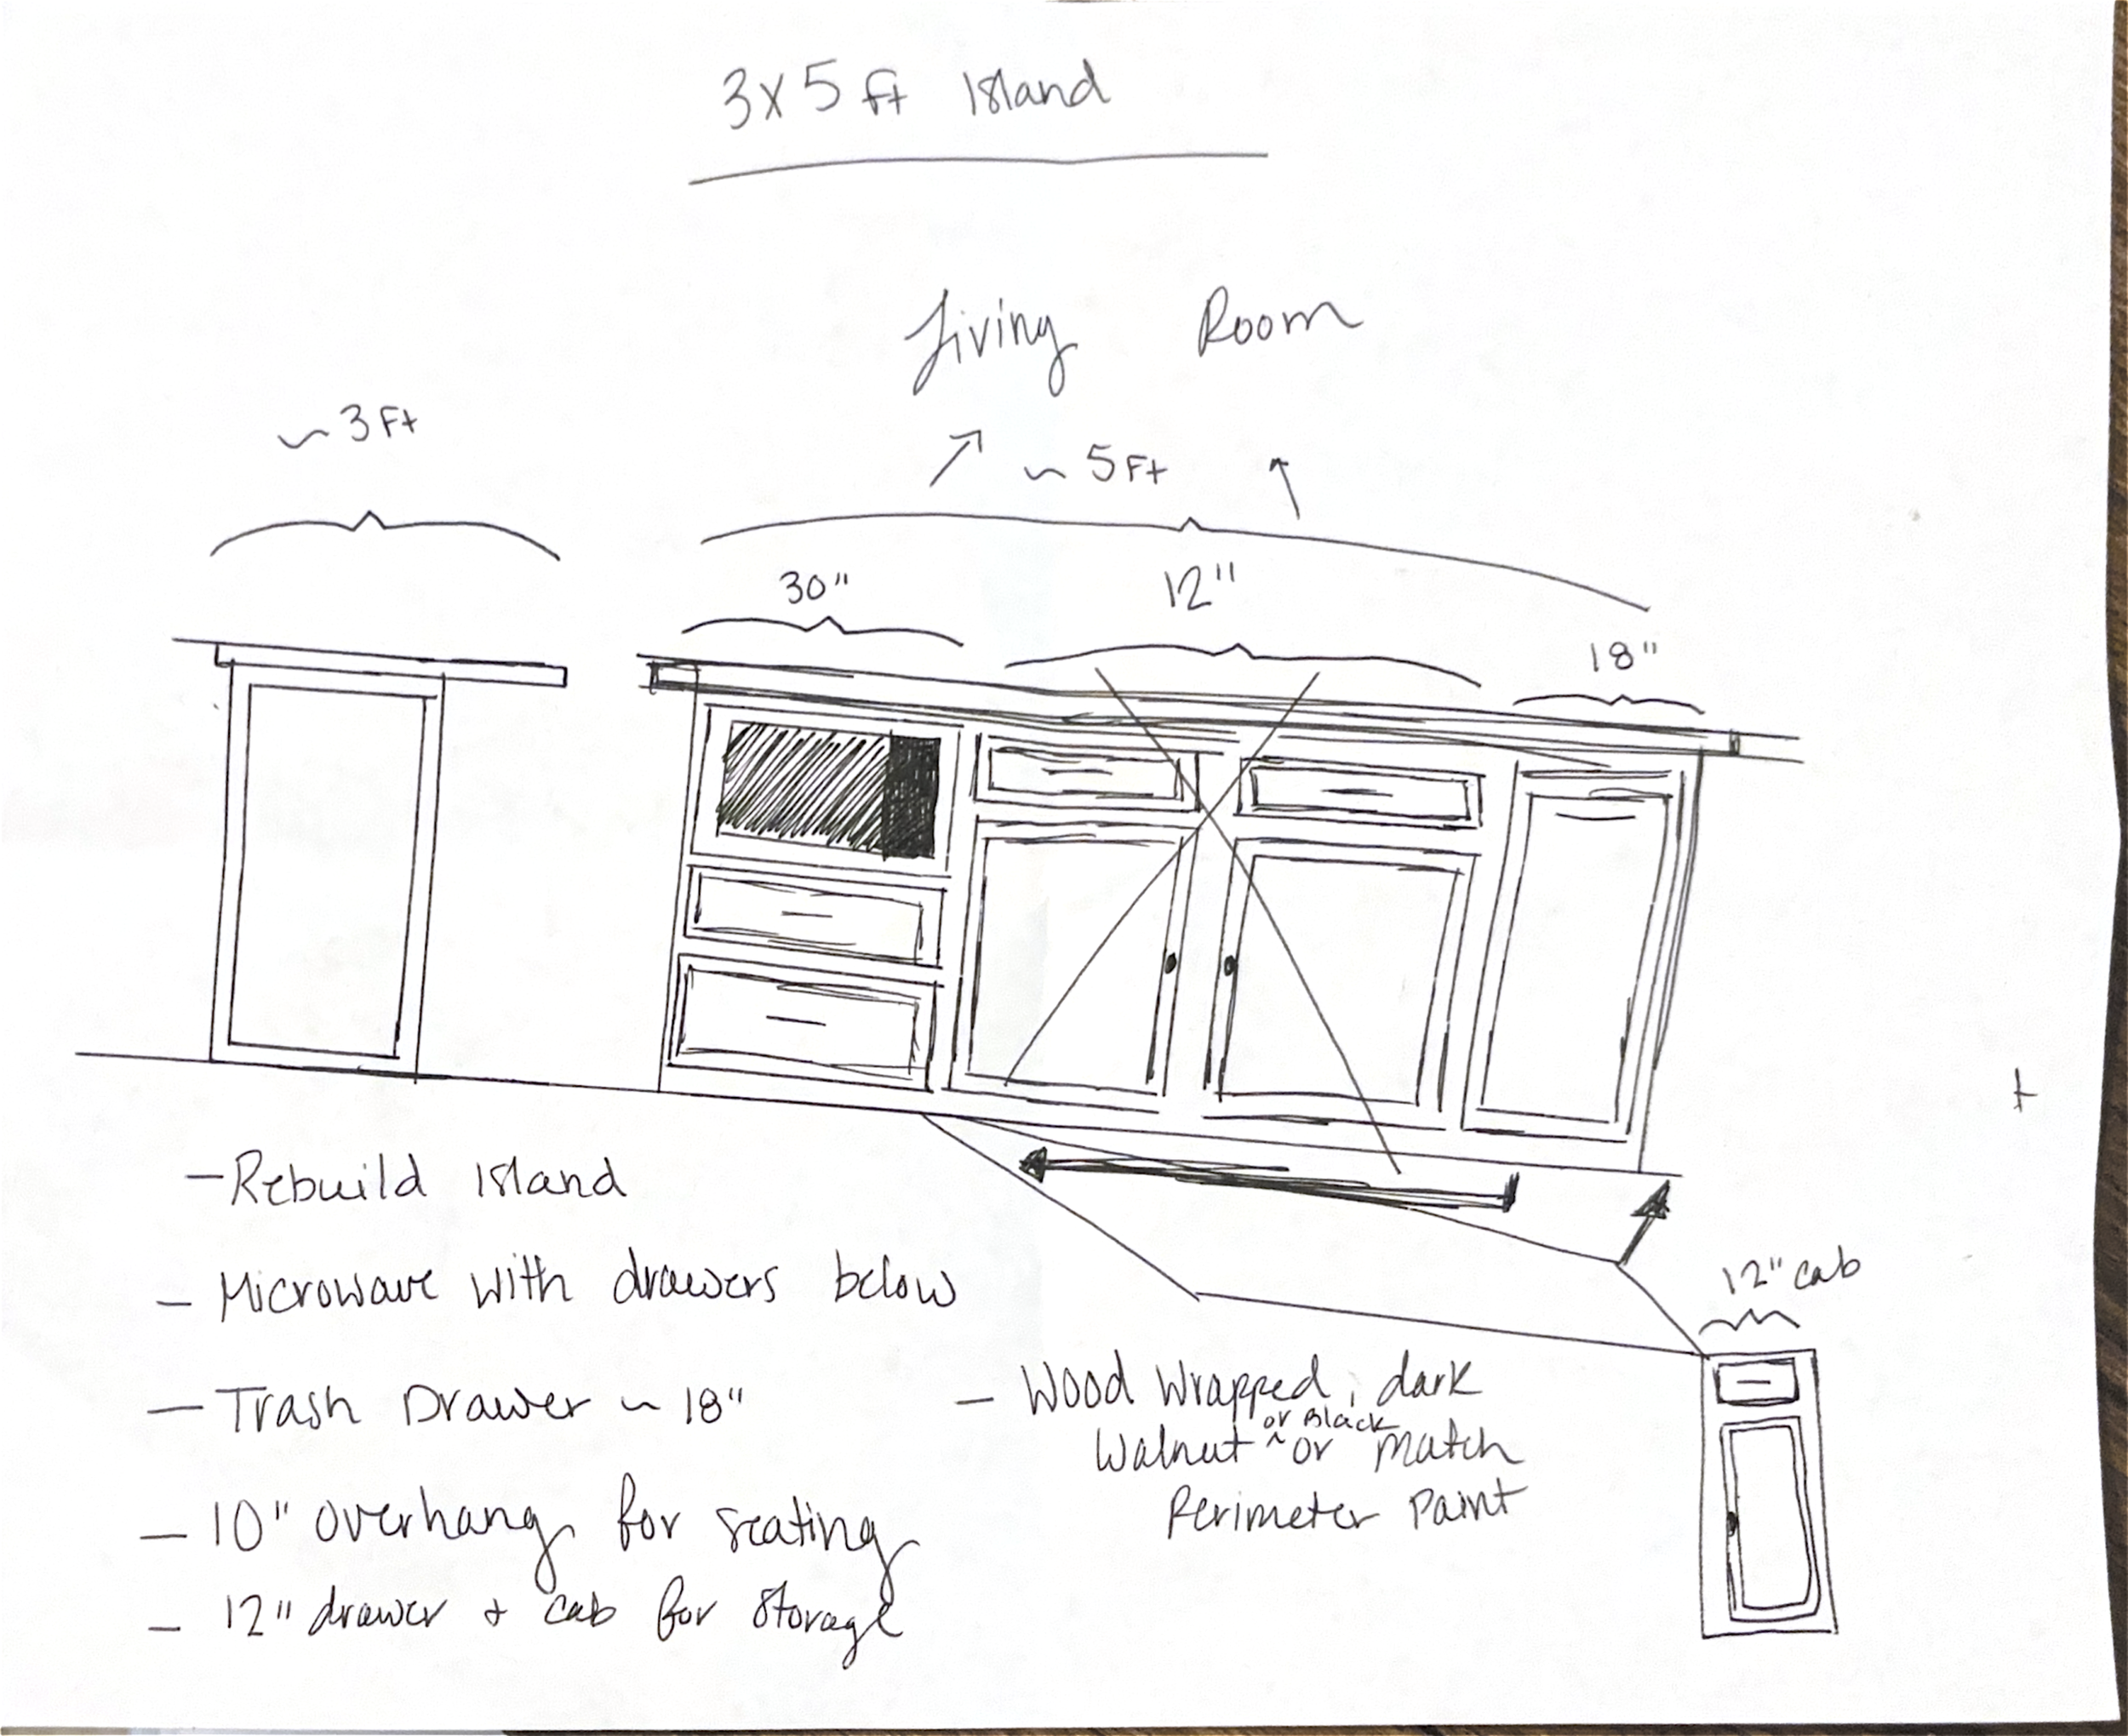 3x5 ft Island
Living Room
~ 3 Ft
~ 5 Ft
30"
12"
18"
- Rebuild Island
- Microwave with drawers below
- Trash Drawer ~ 18"
- 10" overhang for seating
- 12" drawer + cab for storage
- Wood Wrapped, dark
or Black
Walnut ^ or match
Perimeter Paint
12" cab